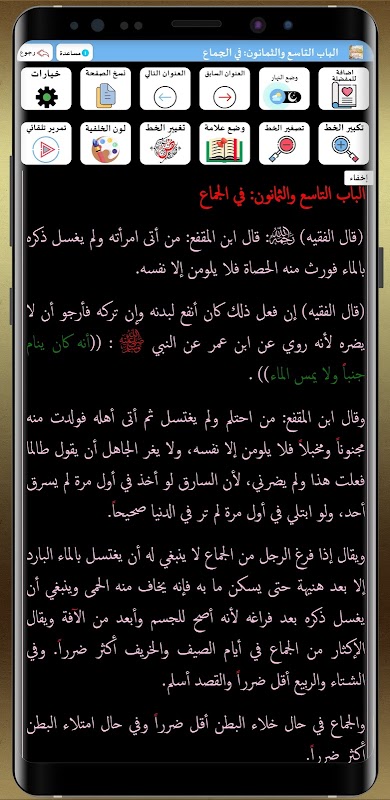 الباب التاسع والثمانون: في الجماع
مساعدة
رجوع
اضافة للمفضلة
وضع النهار
العنوان السابق
العنوان التالي
نسخ الصفحة
خيارات
تكبير الخط
تصغير الخط
وضع علامة
تغيير الخط
لون الخلفية
تمرير تلقائي
إخفاء
الباب التاسع والثمانون: في الجماع
(قال الفقيه) ﷺ: قال ابن المقفع: من أتى امرأته ولم يغسل ذكره
بالماء فورث منه الحصاة فلا يلومن إلا نفسه.
(قال الفقيه) إن فعل ذلك كان أنفع لبدنه وإن تركه فأرجو أن لا
يضره لأنه روي عن ابن عمر عن النبي ﷺ : ((أنه كان ينام
جنباً ولا يمس الماء)) .
وقال ابن المقفع: من احتلم ولم يغتسل ثم أتى أهله فولدت منه
مجنوناً ومخبلاً فلا يلومن إلا نفسه، ولا يغر الجاهل أن يقول طالما
فعلت هذا ولم يضرني، لأن السارق لو أخذ في أول مرة لم يسرق
أحد، ولو ابتلي في أول مرة لم تر في الدنيا صحيحاً.
ويقال إذا فرغ الرجل من الجماع لا ينبغي له أن يغتسل بالماء البارد
إلا بعد هنيهة حتى يسكن ما به فإنه يخاف منه الحمى وينبغي أن
يغسل ذكره بعد فراغه لأنه أصح للجسم وأبعد من الآفة ويقال
الإكثار من الجماع في أيام الصيف والخريف أكثر ضرراً. وفي
الشتاء والربيع أقل ضرراً والقصد أسلم.
والجماع في حال خلاء البطن أقل ضرراً وفي حال امتلاء البطن
أكثر ضرراً.